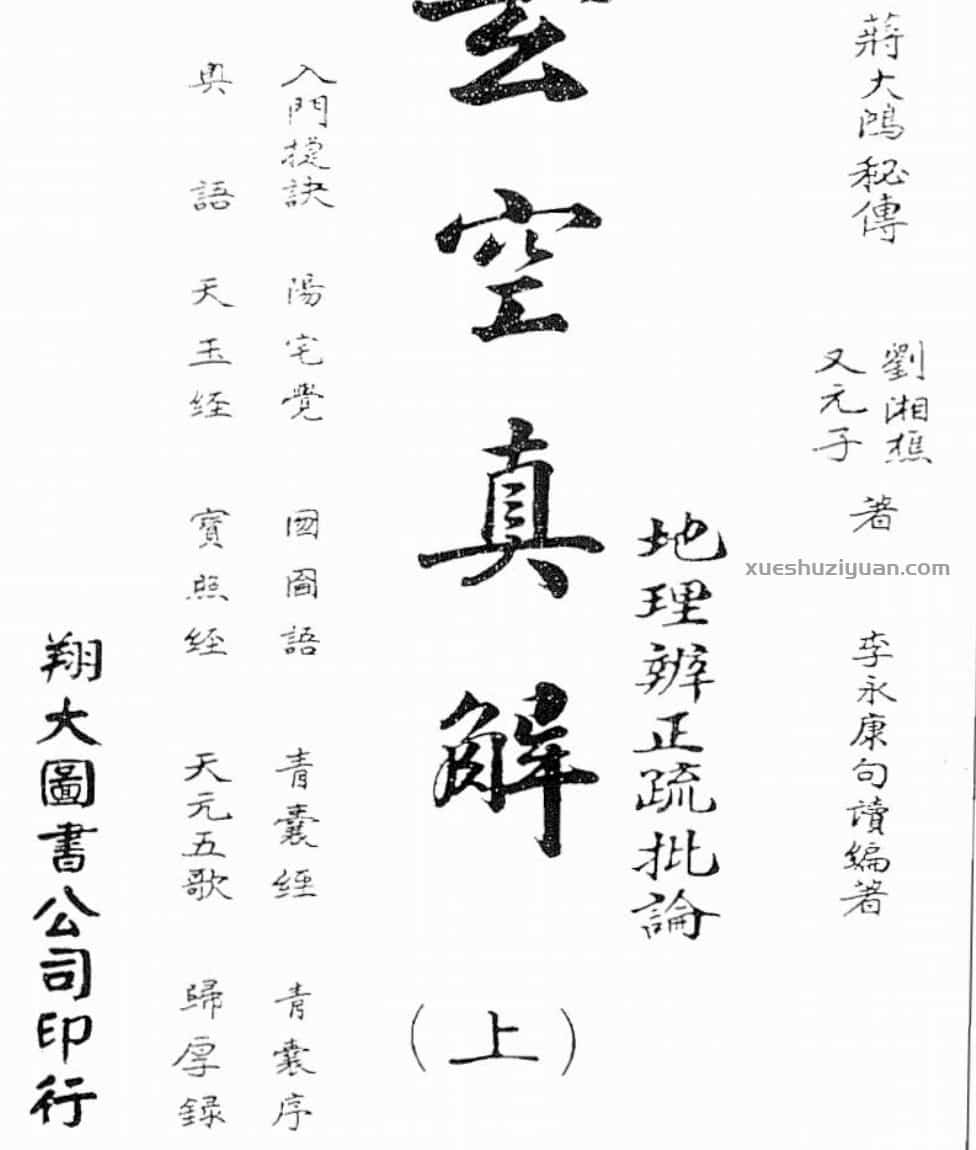 蔣大鴻秘傳
劉湘樵
又元子
著
李永康句讀編著
地理辨正疏批論
玄空真解
（上）
入門捷訣　陽宅覺　國圖語　青囊經　青囊序
奥語　天玉經　寳照經　天元五歌　歸厚録
翔大圖書公司印行
xueshuziyuan.com